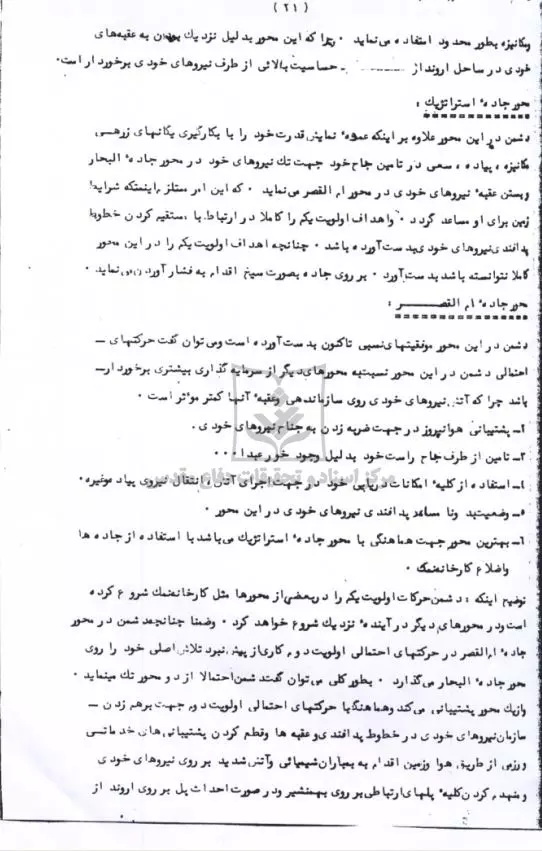 ( ۲۱ )
مکانیزه بطور محدود استفاده می‌نماید ۰ چرا که این محور بدلیل نزدیک بودن به عقبه‌های
خودی در ساحل اروند از ــ حساسیت بالائی از طرف نیروهای خودی برخوردار است۰
محور جاده ٔ استراتژیک :
دشمن در این محور علاوه بر اینکه عمده ٔ نمایش قدرت خود را با بکارگیری یگانهای زرهی
مکانیزه ، پیاده ، سعی در تامین جاح خود جهت تک نیروهای خود در محور جاده ٔ البحار
و بستن عقبه ٔ نیروهای خودی در محور ام القصر می‌نماید ۰ که این امر مستلزم اینستکه شرایط
زمین برای او مساعد گردد ۰ و اهداف اولویت یکم را کاملا در ارتباط با مستقیم کردن خطوط
پدافندی نیروهای خودی بدست آورده باشد ۰ چنانچه اهداف اولویت یکم را در این محور
کاملا نتوانسته باشد بدست آورد ۰ بر روی جاده بصورت سیخ اقدام به فشار آوردن می نماید ۰
محور جاده ٔ ام القصــــر :
دشمن در این محور موفقیتهای نسبی تاکنون بدست آورده است و می توان گفت حرکتهای ــ
احتمالی دشمن در این محور نسبت به محورهای دیگر از سرمایه گذاری بیشتری برخوردار ــ
باشد چرا که آتش نیروهای خودی روی سازماندهی و عقبه ٔ آنها کمتر موثر است ۰
۲ــ پشتیبانی هوانیروز در جهت ضربه زدن به جناح نیروهای خودی ۰
۳ــ تامین از طرف جاح راست خود بدلیل وجود خور عبدا ۰۰۰
۴ــ استفاده از کلیه ٔ امکانات دریایی خود در جهت اجرای آتش ، انتقال نیروی پیاده و غیره۰
۵ــ وضعیت بد و نا مساعد پدافندی نیروهای خودی در این محور ۰
۶ــ بهترین محور جهت هماهنگی با محور جاده ٔ استراتژیک می باشد با استفاده از جاده ها
و اضلاع کارخانه نمک ۰
توضیح اینکه : دشمن حرکات اولویت یکم را در بعضی از محورها مثل کارخانه نمک شروع کرده
است و در محورهای دیگر در آینده ٔ نزدیک شروع خواهد کرد ۰ وضمنا چنانچه دشمن در محور
جاده ٔ ام القصر در حرکتهای احتمالی اولویت دوم کاری از پیش نبرد تلاش اصلی خود را روی
محور جاده ٔ البحار می گذارد ۰ بطور کلی می توان گفت دشمن احتمالا از دو محور تک مینماید ۰
و از یک محور پشتیبانی می کند و هماهنگ با حرکتهای احتمالی اولویت دوم جهت برهم زدن ــ
سازمان نیروهای خودی در خطوط پدافندی و عقبه ها و قطع کردن پشتیبانی های خدماتی
و رزمی از طریق هوا و زمین اقدام به بمباران شیمیائی و آتش شدید بر روی نیروهای خودی
و منهدم کردن کلیه ٔ پلهای ارتباطی بر روی بهمنشیر و در صورت احداث پل بر روی اروند از
مرکز اسناد و تحقیقات دفاع مقدس